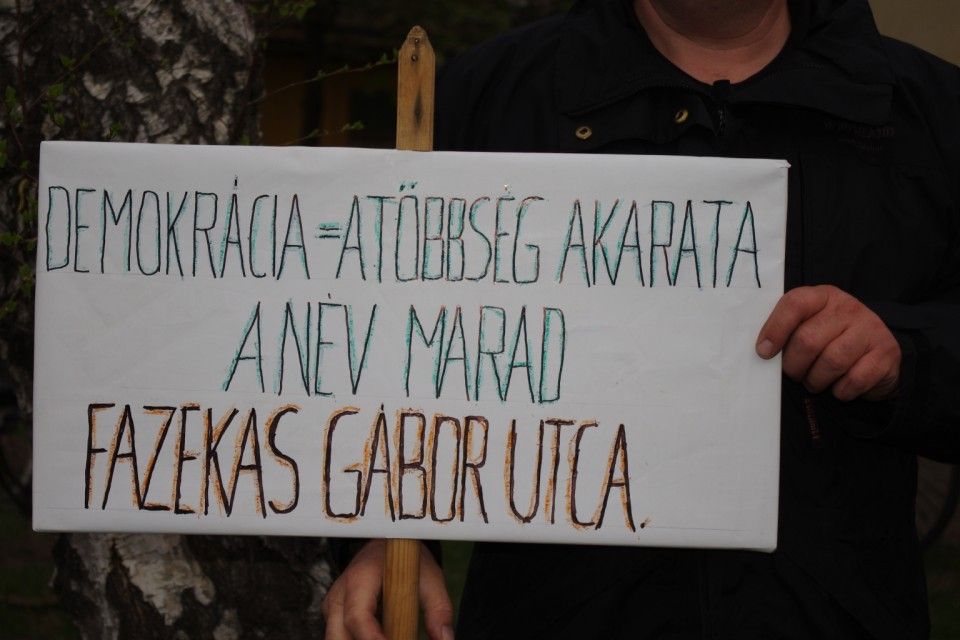 DEMOKRÁCIA = A TÖBBSÉG AKARATA
A NÉV MARAD
FAZEKAS GÁBOR UTCA.